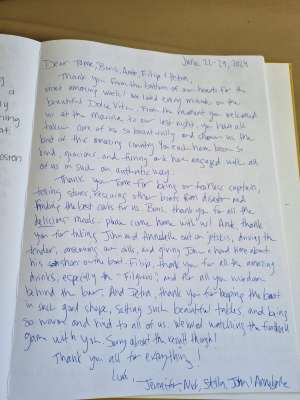 June 22-29, 2024
Dear Tome, Boris, Ante, Filip & Petra,
Thank you from the bottom of our hearts for the
most amazing week! We loved every minute on the
beautiful Dolce Vita. From the moment you welcomed
us at the marina to our last night, you have all
taken care of us so beautifully and shown us the
best of this amazing country. You each have been so
kind, gracious and funny and have engaged with all
of us in such an authentic way.
Thank you Tome for being our fearless captain,
telling stories, rescuing other boats from disaster and
finding the best coves for us. Boris, thank you for all the
delicious meals - please come home with us! Ante thank
you for taking John and Annabelle out on jetskis, driving the
tender, answering our calls, and giving John a hard time about
his on the boat. Filip, thank you for all the amazing
drinks, especially the "Filipino", and for all your wisdom
behind the bar. And Petra, thank you for keeping the boat
in such good shape, setting such beautiful tables and being
so warm and kind to all of us. We loved watching the football
game with you. Sorry about the result though!
Thank you all for everything!
Love,
Jennifer, Stella, John & Annabelle
a
ly
ing
at